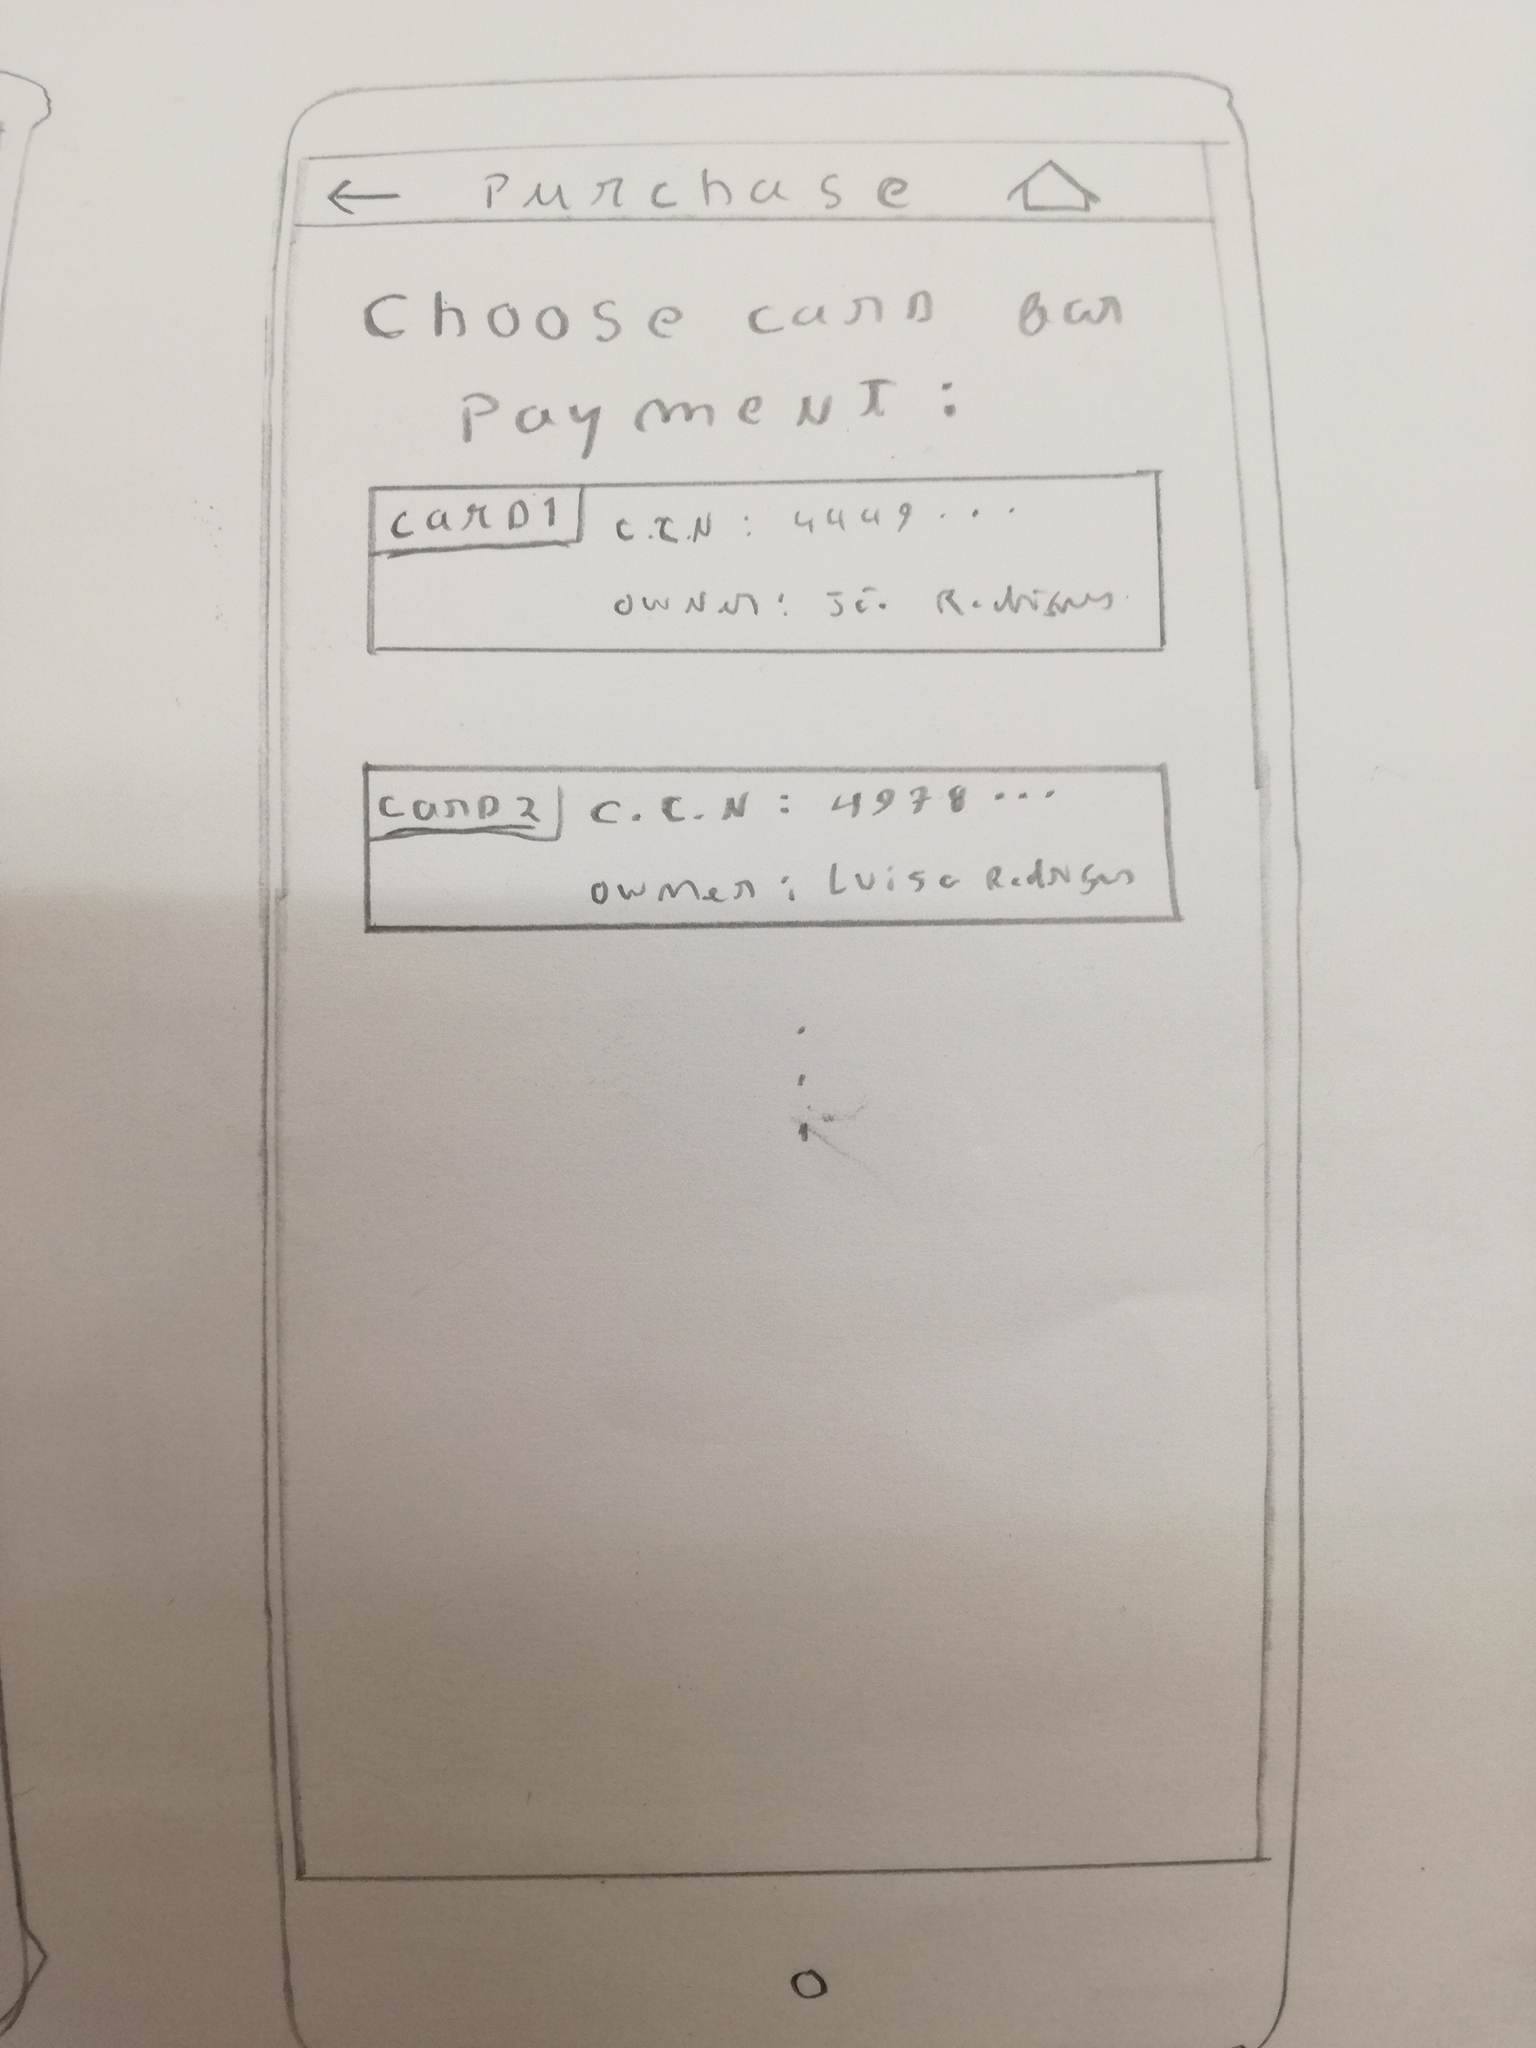 Purchase
Choose card for
Payment:
Card1
C.C.N: 4449...
Owner: Rodrigues
Card2
C.C.N: 4978...
Owner: Luisa Rodrigues